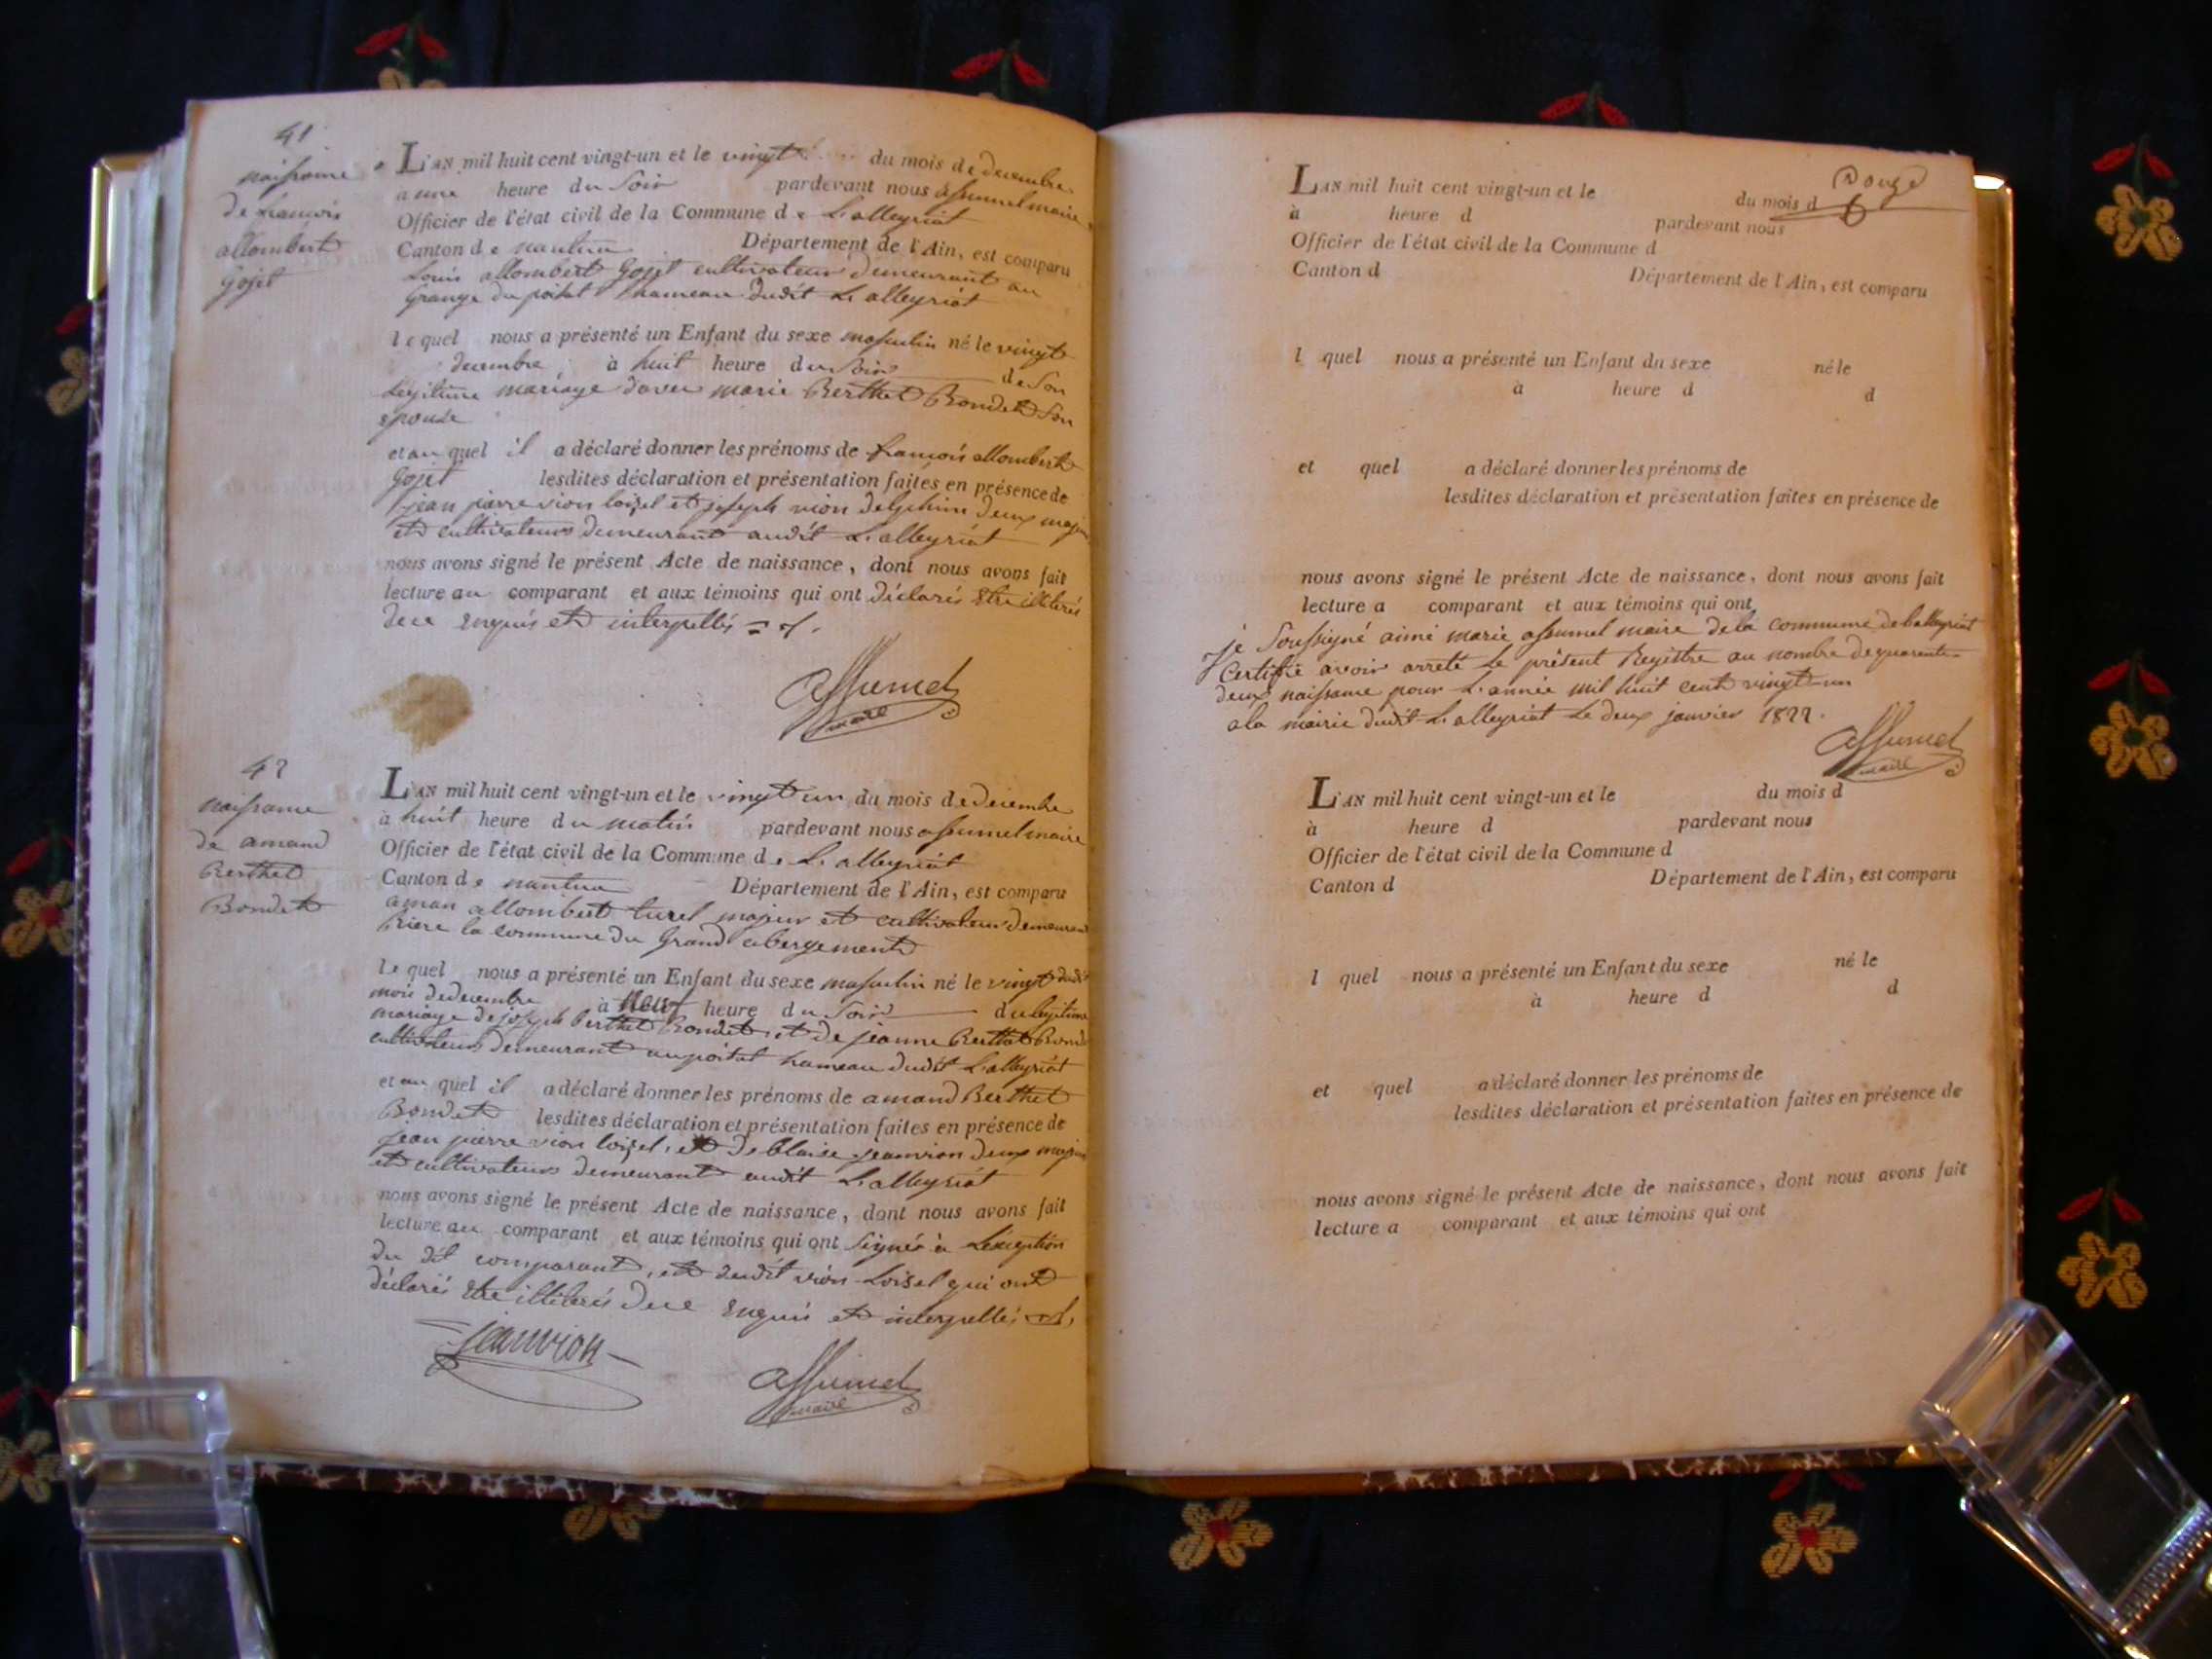 41
naissance
de francois
allombert
Gojet
L'AN mil huit cent vingt-un et le vingt du mois de decembre
a une heure du soir pardevant nous assumel maire
Officier de l'état civil de la Commune de L'alleyriat
Canton de nantua Département de l'Ain, est comparu
Louis allombert Gojet cultivateur demeurant au
Grange du poitat hameau dudit L'alleyriat
lequel nous a présenté un Enfant du sexe masculin né le vingt
decembre à huit heure du soir de Son
Legitime mariage d'avec marie Berthet Bondet Son
epouse
et au quel il a déclaré donner les prénoms de francois allombert
Gojet lesdites déclaration et présentation faites en présence de
jean pierre vion loisel et joseph vion Delphin deux majeurs
et cultivateurs demeurant audit L'alleyriat
nous avons signé le présent Acte de naissance, dont nous avons fait
lecture au comparant et aux témoins qui ont déclarés Etre illiterés
de ce Enquis et interpellés
assumel
maire
42
naissance
de amand
Berthet
Bondet
L'AN mil huit cent vingt-un et le vingt un du mois de decembre
à huit heure du matin pardevant nous assumel maire
Officier de l'état civil de la Commune de L'alleyriat
Canton de nantua Département de l'Ain, est comparu
aman allombert turel majeur et cultivateur demeurant
Riere la commune du Grand abergement
lequel nous a présenté un Enfant du sexe masculin né le vingt dudit
mois de decembre à Neuf heure du Soir du legitime
mariage de joseph Berthet Bondet et de jeanne Berthet Bondet
cultivateurs demeurant au poitat hameau dudit L'alleyriat
et au quel il a déclaré donner les prénoms de amand Berthet
Bondet lesdites déclaration et présentation faites en présence de
jean pierre vion loisel, et de blaise jeanvion deux majeurs
et cultivateurs demeurant audit L'alleyriat
nous avons signé le présent Acte de naissance, dont nous avons fait
lecture au comparant et aux témoins qui ont signés à L'exception
du dit comparant, et dudit vion Loisel qui ont
déclarés Etre illiterés de ce Enquis et interpellés
jeanvion
assumel
maire
Douze
L'AN mil huit cent vingt-un et le du mois d
à heure d pardevant nous
Officier de l'état civil de la Commune d
Canton d Département de l'Ain, est comparu
l quel nous a présenté un Enfant du sexe né le
à heure d d
et quel a déclaré donner les prénoms de
lesdites déclaration et présentation faites en présence de
nous avons signé le présent Acte de naissance, dont nous avons fait
lecture a comparant et aux témoins qui ont
je Soussigné aimé marie assumel maire de la commune de L'alleyriat
Certifie avoir arreté Le présent Registre au nombre de quarente
deux naissance pour L'année mil huit cent vingt-un
a la mairie dudit L'alleyriat Le deux janvier 1822.
assumel
maire
L'AN mil huit cent vingt-un et le du mois d
à heure d pardevant nous
Officier de l'état civil de la Commune d
Canton d Département de l'Ain, est comparu
l quel nous a présenté un Enfant du sexe né le
à heure d d
et quel a déclaré donner les prénoms de
lesdites déclaration et présentation faites en présence de
nous avons signé le présent Acte de naissance, dont nous avons fait
lecture a comparant et aux témoins qui ont